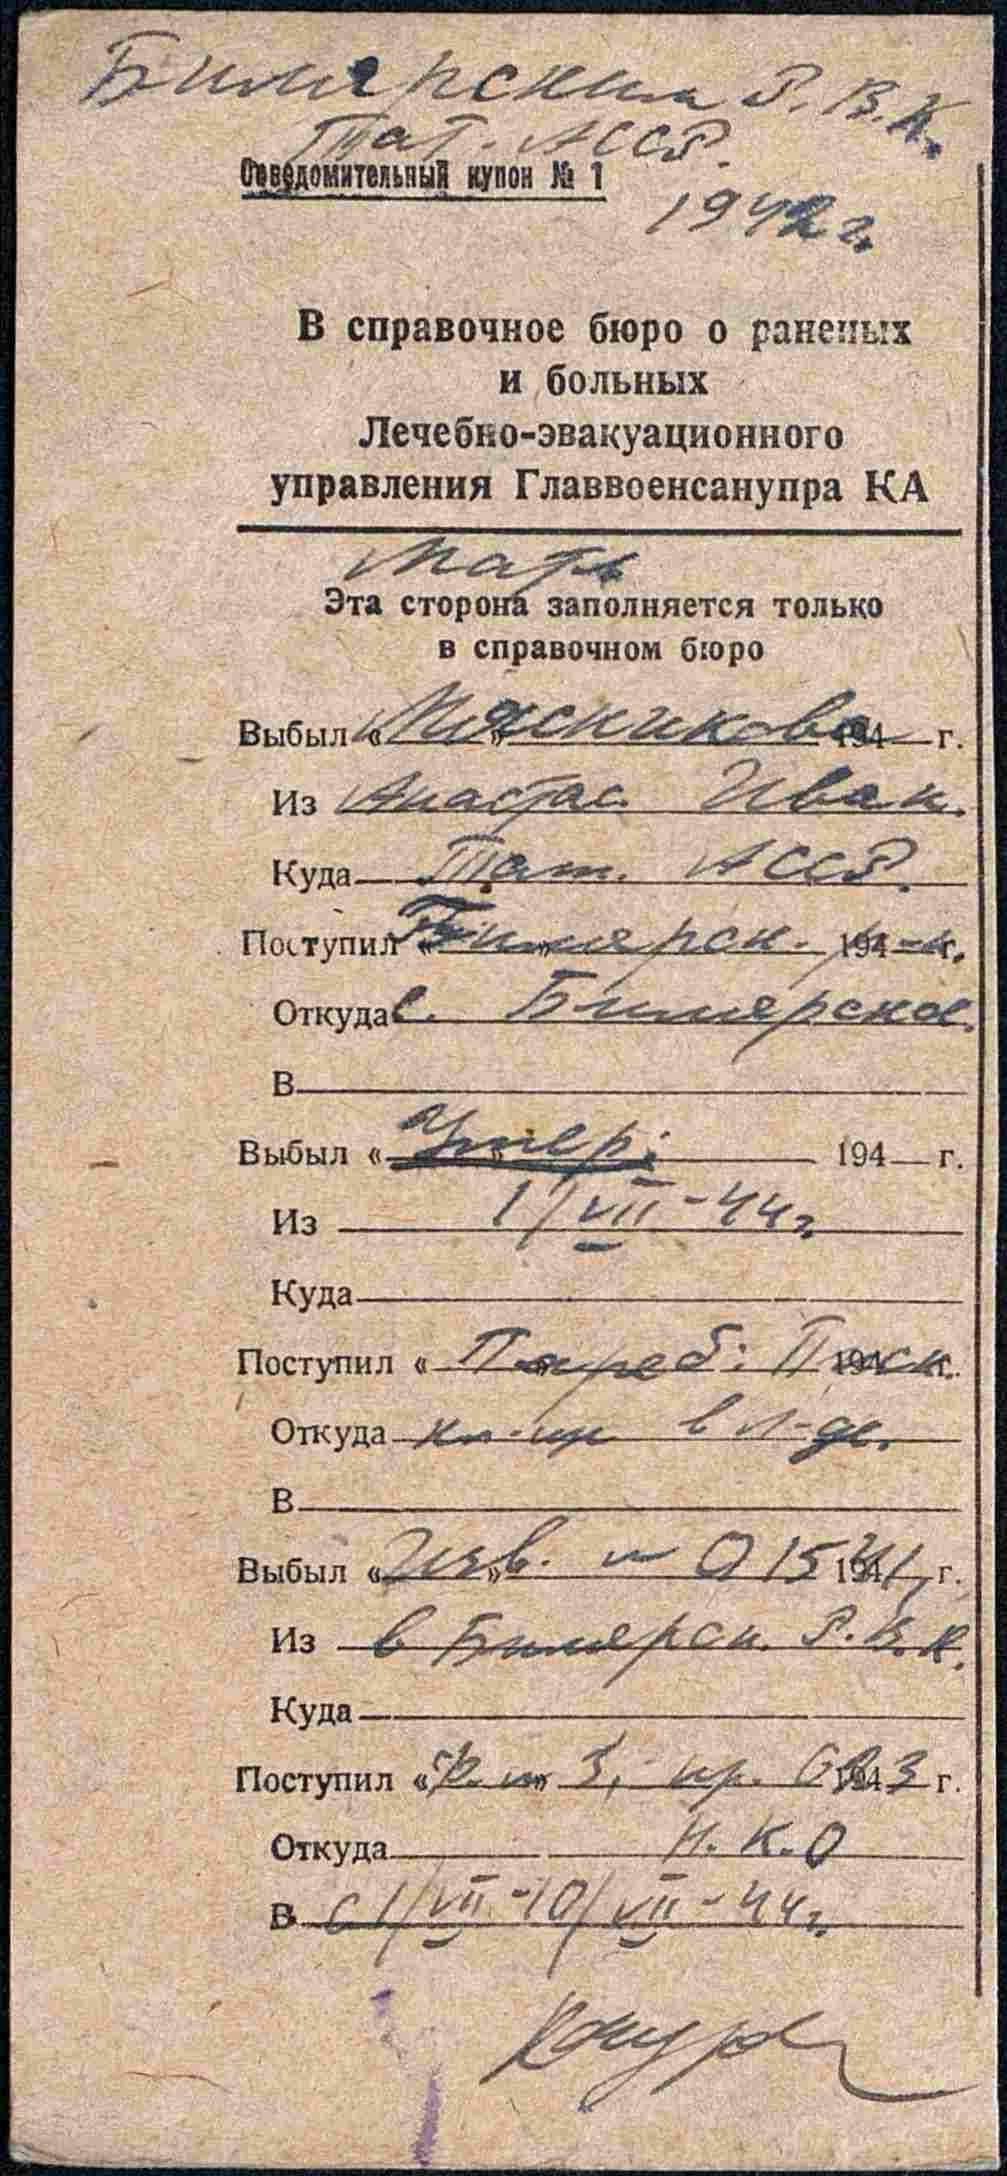 Билярским Р.В.К.
Тат. АССР.
Осведомительный купон № 1
1942 г.
В справочное бюро о раненых
и больных
Лечебно-эвакуационного
управления Главвоенсанупра КА
Мать
Эта сторона заполняется только
в справочном бюро
Выбыл « Мясникова » 194 г.
Из Анастас. Иван.
Куда Тат. АССР.
Поступил « Билярск. » р-н. 194 г.
Откуда с. Билярское.
В
Выбыл « Умер: » 194 г.
Из 1/VII-44г.
Куда
Поступил « Погреб: Писк. » 194 г.
Откуда кл-ще в Л-де.
В
Выбыл « Изв. № 01541, » 194 г.
Из в Билярск. Р.В.К.
Куда
Поступил « Ф. № 3, пр. 023 » 194 г.
Откуда Н.К.О
В с 1/VII-10/VII-44г.